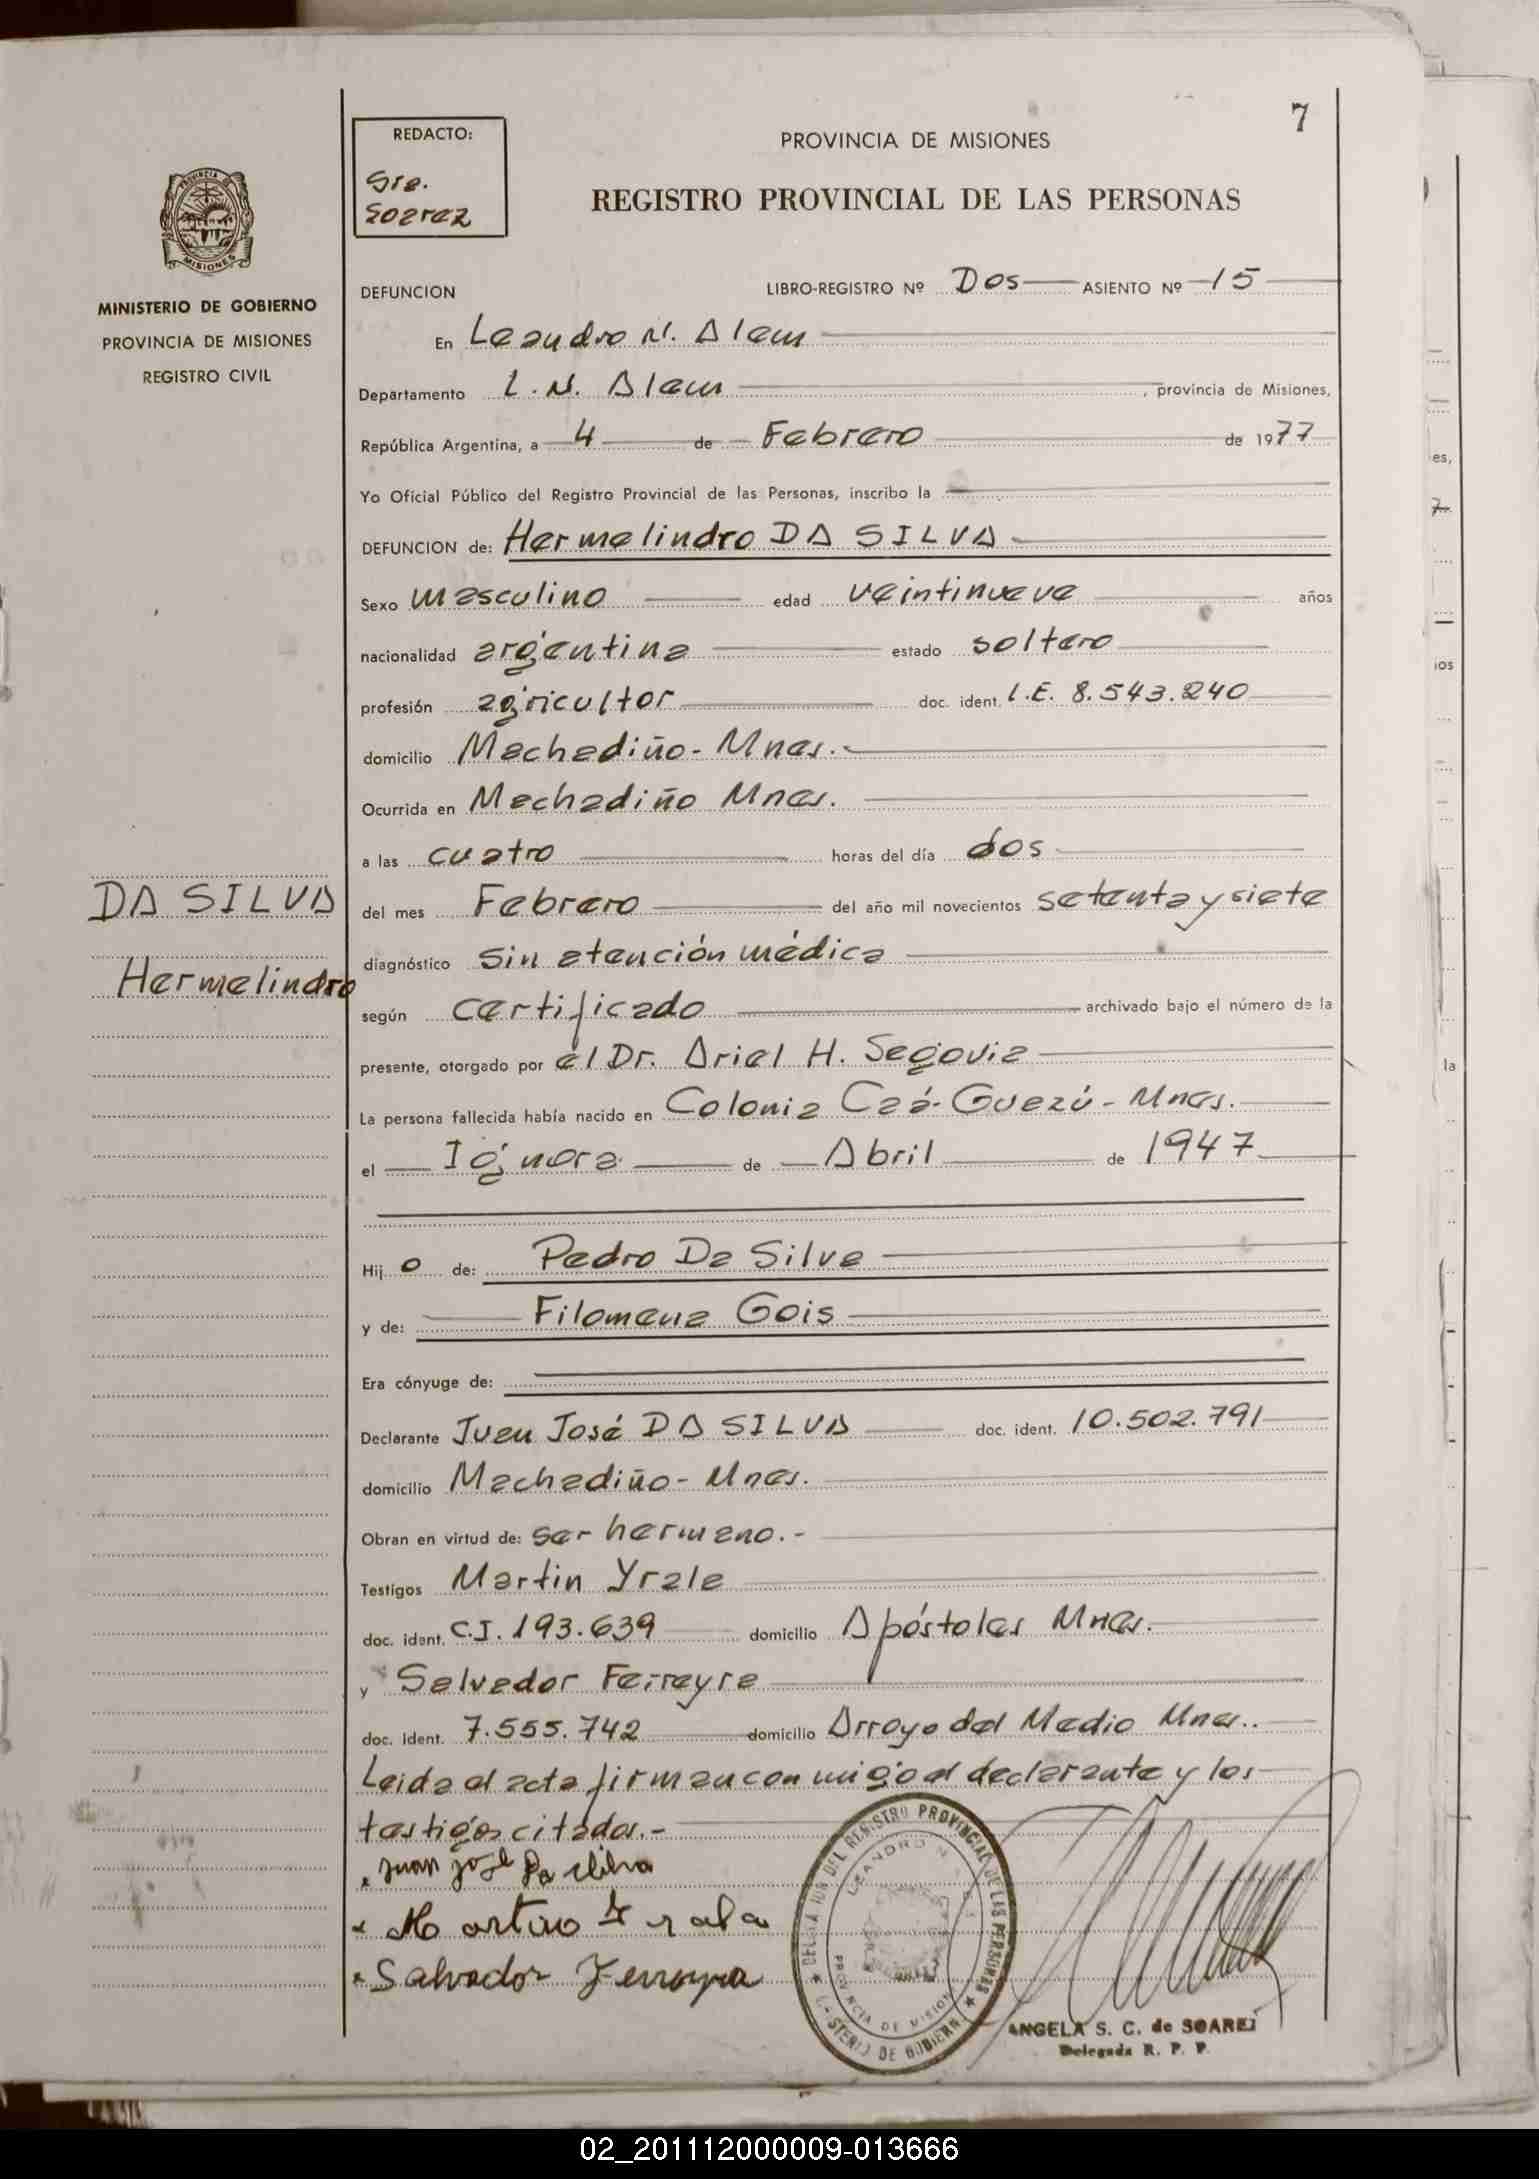 7
REDACTO:
Sra.
Soarez
PROVINCIA DE MISIONES
REGISTRO PROVINCIAL DE LAS PERSONAS
PROVINCIA DE
MISIONES
MINISTERIO DE GOBIERNO
PROVINCIA DE MISIONES
REGISTRO CIVIL
DEFUNCION LIBRO-REGISTRO Nº Dos ASIENTO Nº 15
En Leandro N. Alem
Departamento L. N. Alem , provincia de Misiones,
República Argentina, a 4 de Febrero de 1977
Yo Oficial Público del Registro Provincial de las Personas, inscribo la
DEFUNCION de: Hermelindro DA SILVA
Sexo masculino edad veintinueve años
nacionalidad argentina estado soltero
profesión agricultor doc. ident. L.E. 8.543.240
domicilio Machadiño - Mnes.
Ocurrida en Machadiño Mnes.
a las cuatro horas del día dos
del mes Febrero del año mil novecientos setenta y siete
DA SILVA
Hermelindro
diagnóstico sin atención médica
según certificado archivado bajo el número de la
presente, otorgado por el Dr. Ariel H. Segovia
La persona fallecida había nacido en Colonia Caá-Guazú - Mnes.
el Ignora de Abril de 1947
Hij o de: Pedro Da Silva
y de: Filomena Gois
Era cónyuge de:
Declarante Juan José DA SILVA doc. ident. 10.502.791
domicilio Machadiño - Mnes.
Obran en virtud de: ser hermano.-
Testigos Martin Yrala
doc. ident. C.I. 193.639 domicilio Apóstoles Mnes.
y Salvador Ferreyra
doc. ident. 7.555.742 domicilio Arroyo del Medio Mnes..
Leida el acta firman con migo el declarante y los
testigos citados.-
Juan José Da Silva
Martino Yrala
Salvador Ferreyra
DEL REGISTRO PROVINCIAL DE LAS PERSONAS
LEANDRO N.
PROVINCIA DE MISIONES
DE GOBIERNO
ANGELA S. C. de SOAREZ
Delegada R. P. P.
es,
7.
ios
la
02_201112000009-013666